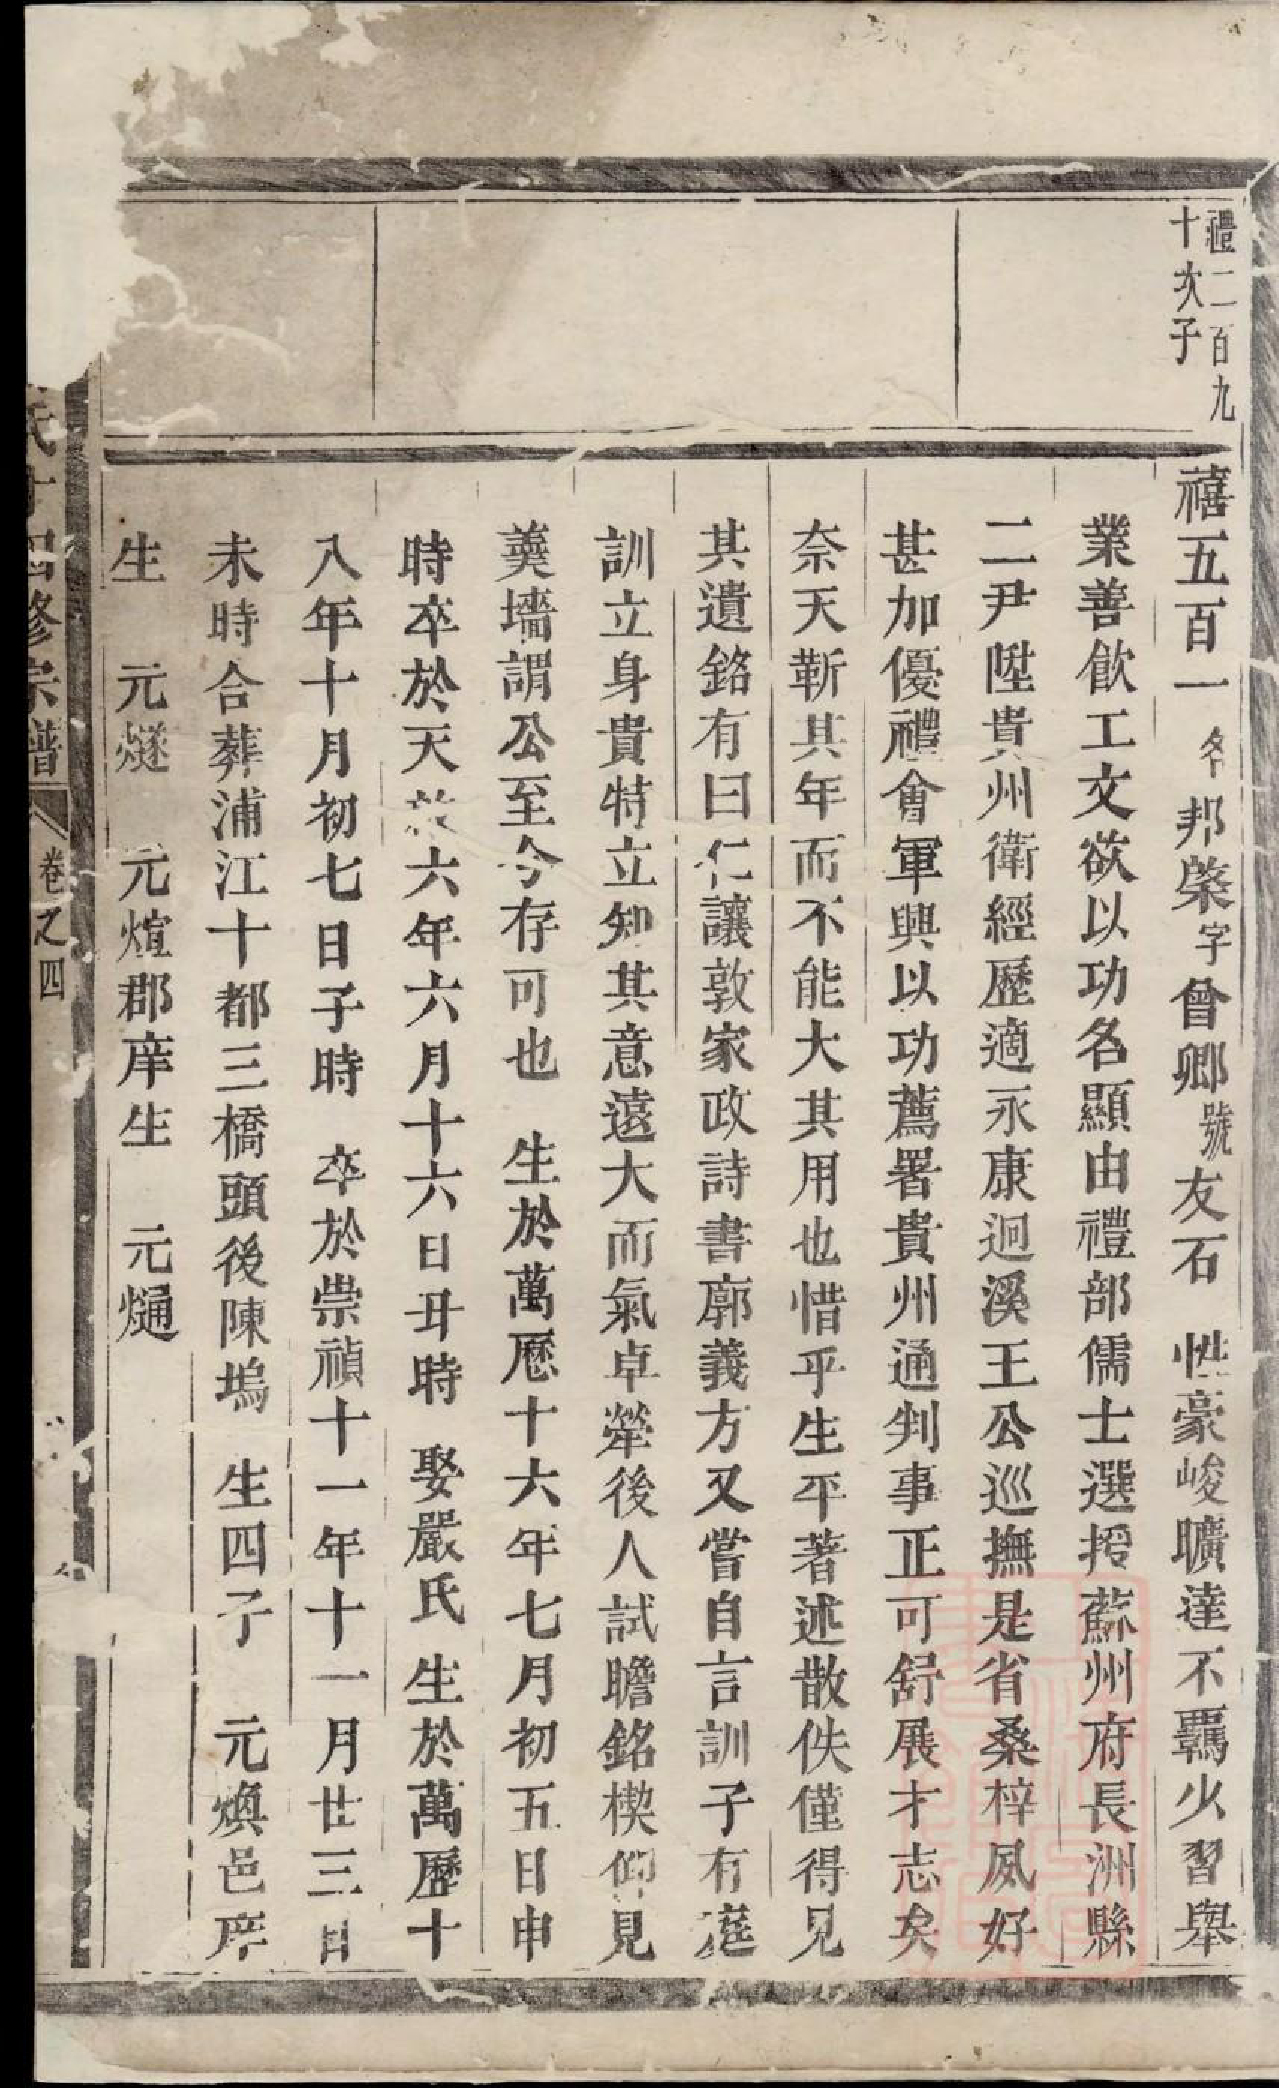 禮二百九
十次子
禧五百一名邦榮字曾卿號友石 性豪峻曠達不羈少習舉
業善飲工文欲以功名顯由禮部儒士選授蘇州府長洲縣
二尹陞貴州衛經歷適永康迴溪王公巡撫是省桑梓夙好
甚加優禮會軍興以功薦署貴州通判事正可舒展才志矣
奈天靳其年而不能大其用也惜乎生平著述散佚僅得見
其遺銘有曰仁讓敦家政詩書廓義方又嘗自言訓子有遲
訓立身貴特立知其意遠大而氣卓犖後人試瞻銘楔仰見
羹墻謂公至今存可也 生於萬歷十六年七月初五日申
時卒於天啟六年六月十六日丑時 娶嚴氏生於萬歷十
八年十月初七日子時 卒於崇禎十一年十一月廿三日
未時合葬浦江十都三橋頭後陳塢 生四子 元煥邑庠
生 元燧 元煊郡庠生 元熥
氏十四修宗譜 卷之四